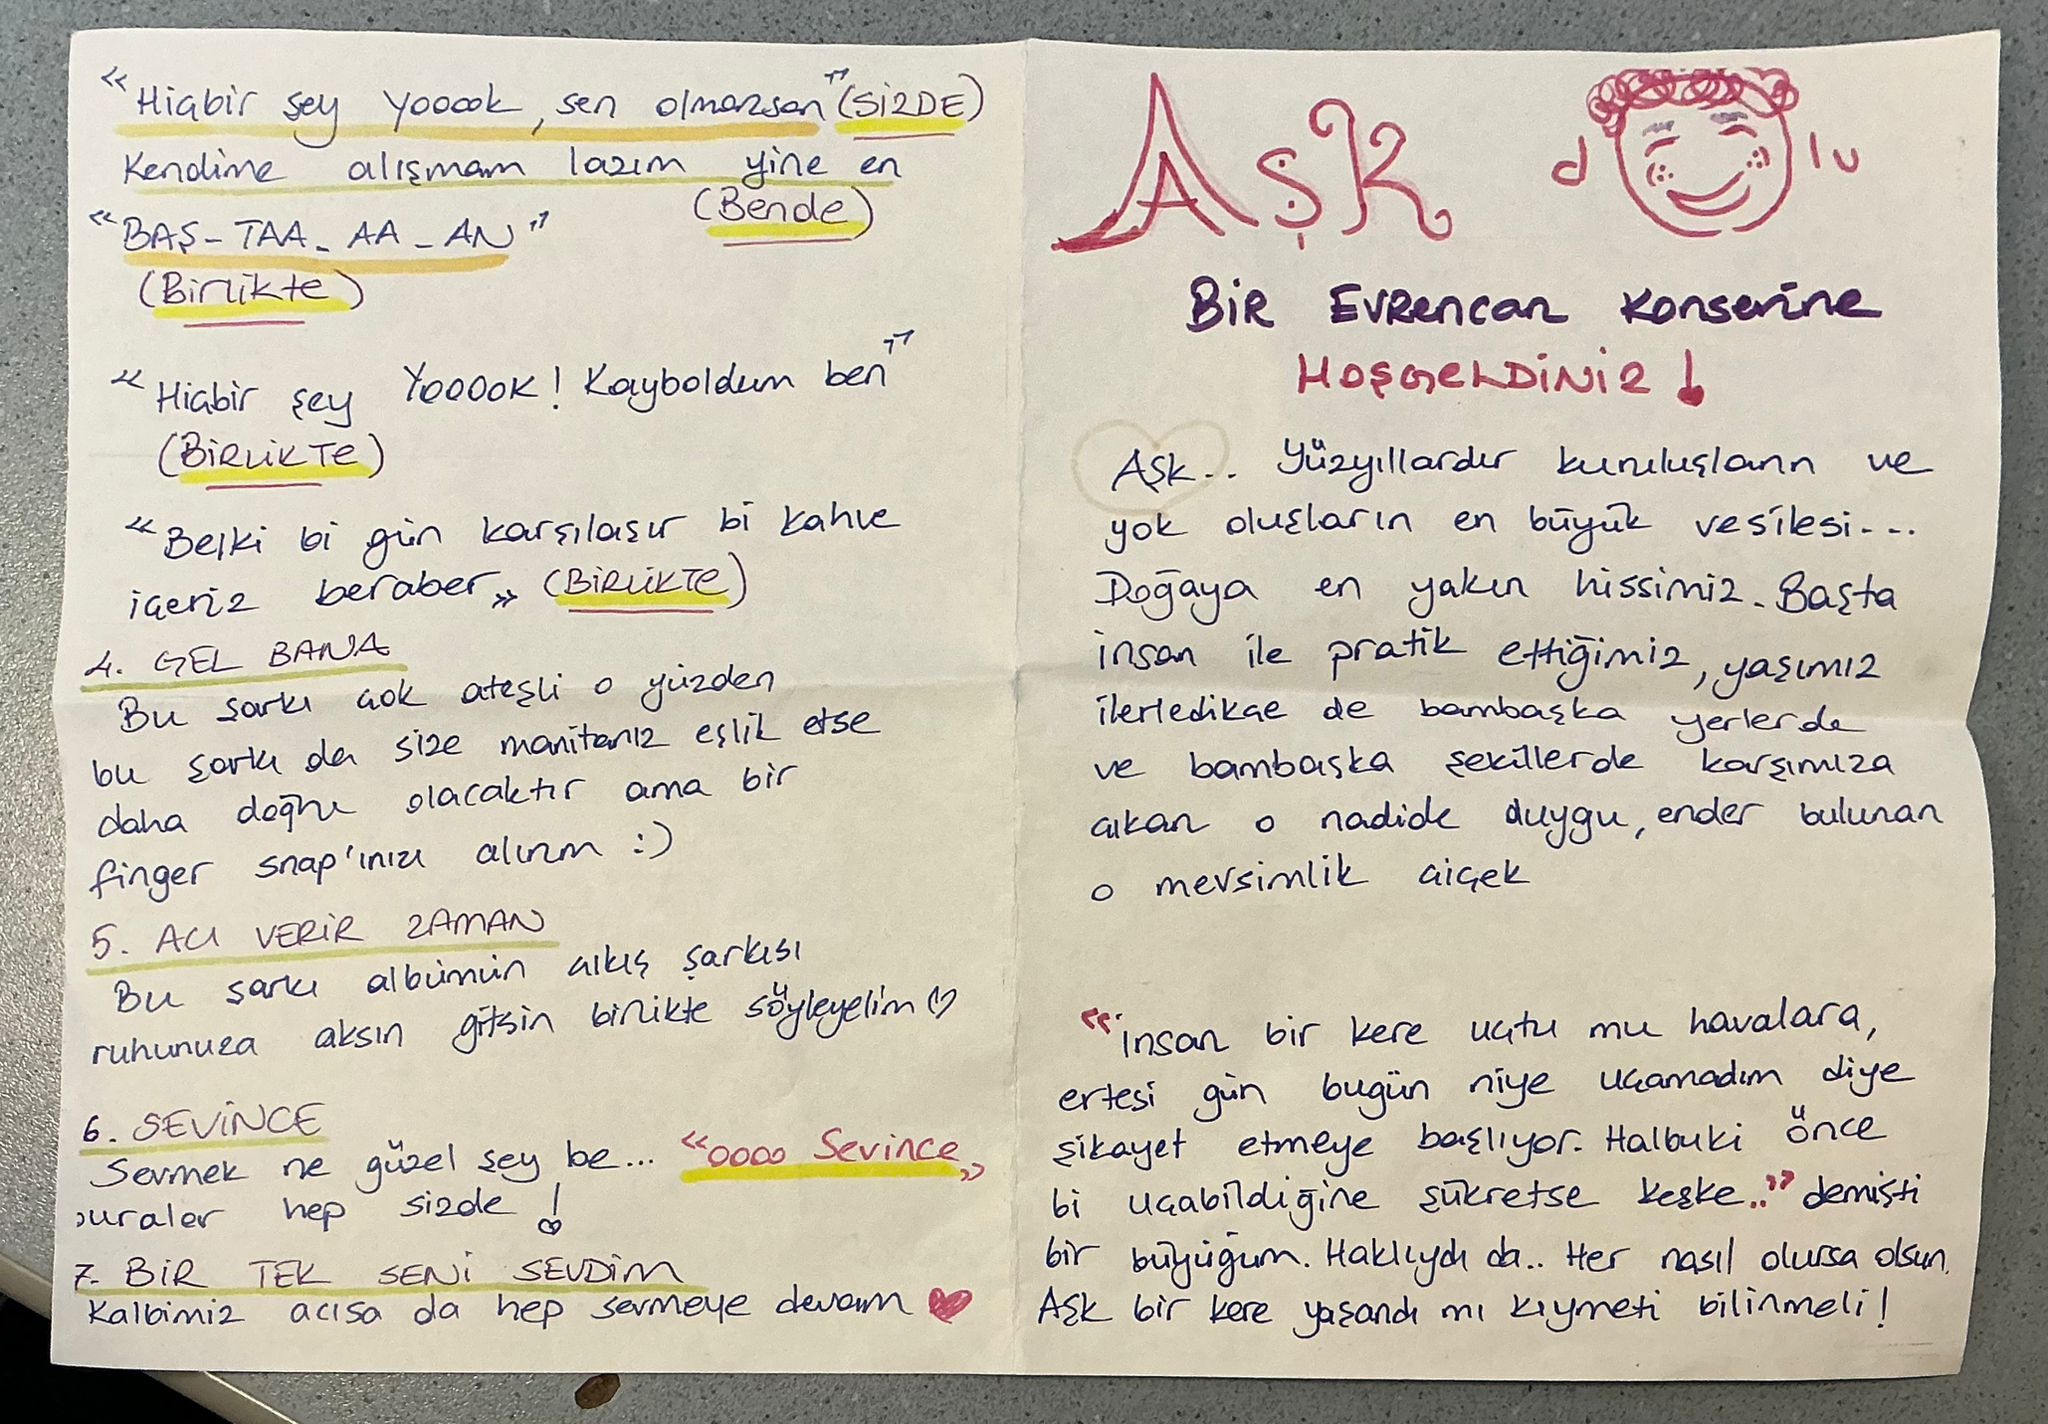 "Hiçbir şey Yooook, sen olmazsan" (SİZDE)
Kendime alışmam lazım yine en
(Bende)
"BAŞ-TAA-AA-AN"
(Birlikte)
"Hiçbir şey Yooook! Kayboldum ben"
(BİRLİKTE)
"Belki bi gün karşılaşır bi kahve
içeriz beraber" (BİRLİKTE)
4. GEL BANA
Bu şarkı çok ateşli o yüzden
bu şarkı da size manitanız eşlik etse
daha doğru olacaktır ama bir
finger snap'inizi alırım :)
5. ACI VERİR ZAMAN
Bu şarkı albümün çıkış şarkısı
ruhunuza aksın gitsin birlikte söyleyelim ♡
6. SEVİNCE
Sevmek ne güzel şey be... "oooo Sevince"
buralar hep sizde!
7. BİR TEK SENİ SEVDİM
Kalbimiz acısa da hep sevmeye devam ♥
AŞK dolu
BİR EVRENCAN Konserine
HOŞGELDİNİZ!
Aşk.. Yüzyıllardır kuruluşların ve
yok oluşların en büyük vesilesi....
Doğaya en yakın hissimiz. Başta
insan ile pratik ettiğimiz, yaşımız
ilerledikçe de bambaşka yerlerde
ve bambaşka şekillerde karşımıza
çıkan o nadide duygu, ender bulunan
o mevsimlik çiçek
"insan bir kere uçtu mu havalara,
ertesi gün bugün niye uçamadım diye
şikayet etmeye başlıyor. Halbuki önce
bi uçabildiğine şükretse keşke.." demişti
bir büyüğüm. Haklıydı da.. Her nasıl olursa olsun.
Aşk bir kere yaşandı mı kıymeti bilinmeli!